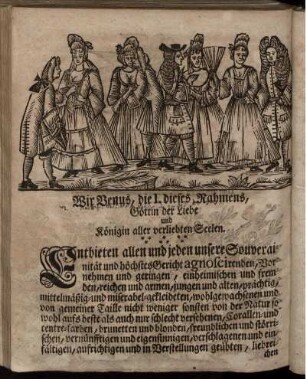 Wir Venus, die I. dieses Nahmens,
Göttin der Liebe
und
Königin aller verliebten Seelen.
Entbieten allen und jeden unsere Souverai-
nität und höchstes Gericht agnoscirenden, Vor-
nehmen und geringen, einheimischen und frem-
den, reichen und armen, jungen und alten, prächtig,
mittelmäßig und miserabel-gekleideten, wohlgewachsenen und
von gemeiner Taille nicht weniger sonsten von der Natur so
wohl aufs beste als auch nur schlecht versehenen, Corallen und
centre-farben, brunetten und blonden, freundlichen und störri-
schen, vernünftigen und eigensinnigen, verschlagenen und ein-
fältigen, aufrichtigen und in Verstellungen geübten, hebrei-
chen